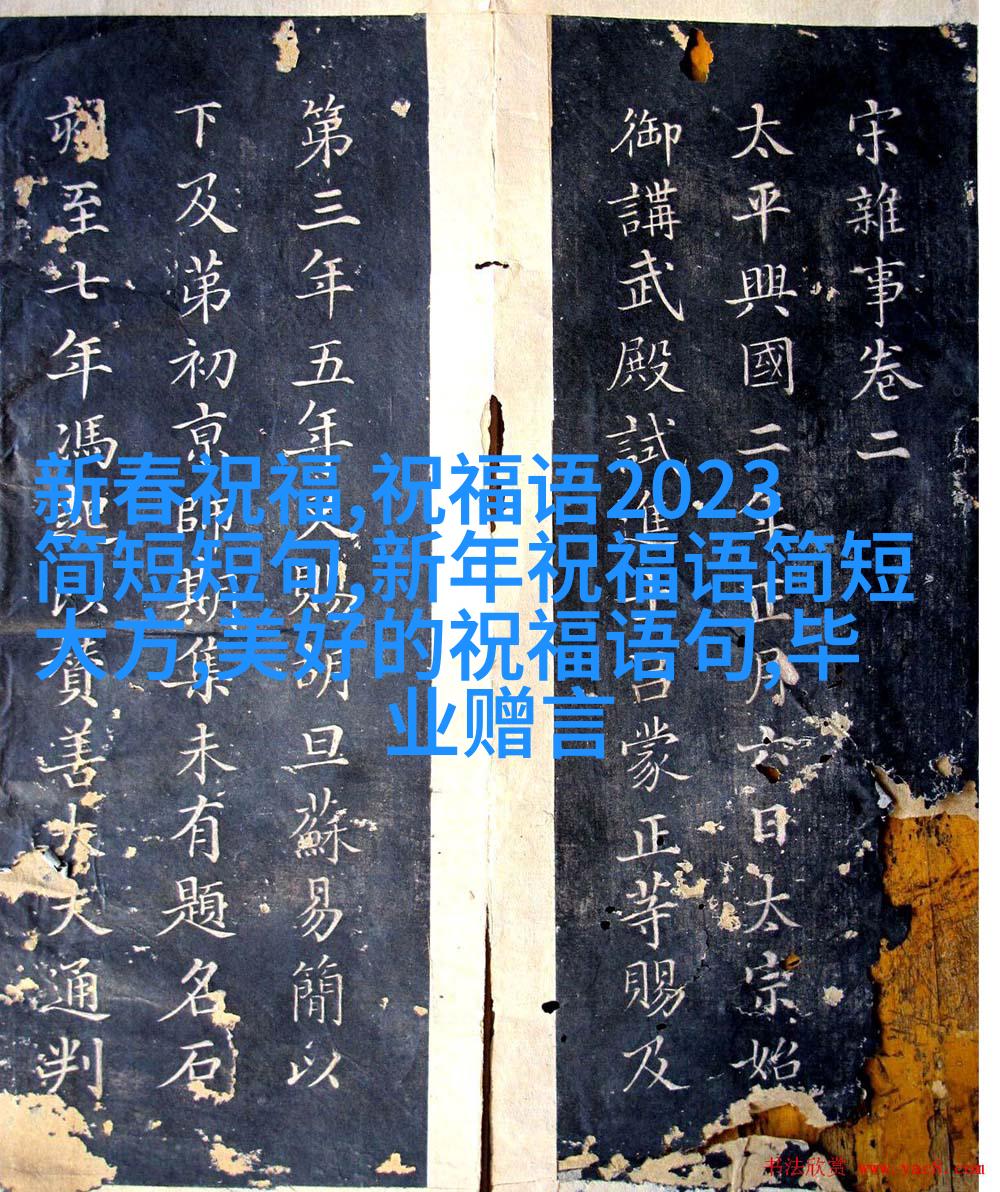 宋雜事卷二
太平興國二年正月六日太宗始
御講武殿試進士呂蒙正等賜及
第三年五年又賜明旦蘇易簡以
下及第初京師期集未有題名石
刻至七年馮起以贊善大夫通判
新春祝福,祝福语2023
简短短句,新年祝福语简短
大方,美好的祝福语句,毕
业赠言
书法欣赏 www.yac8.com